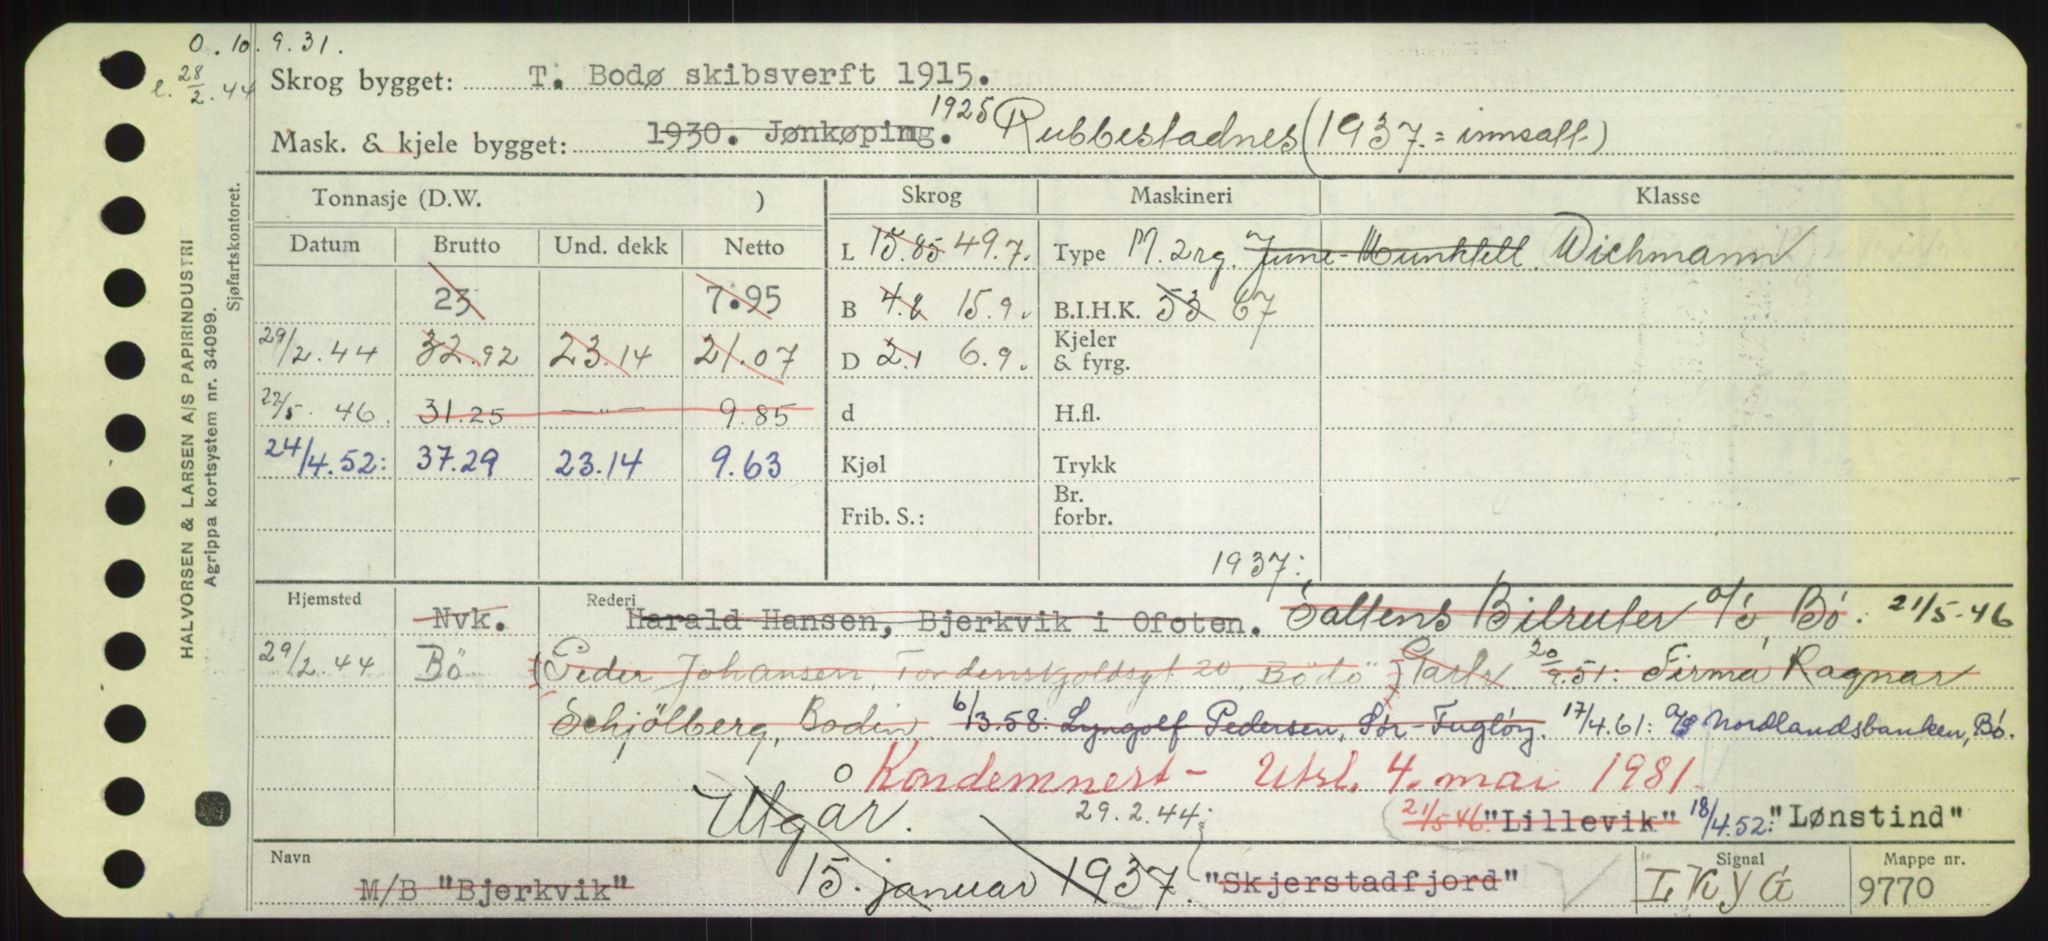 O. 10.9.31.
e. 28/2.44
Skrog bygget: T. Bodø skibsverft 1915.
Mask. & kjele bygget: 1930. Jønkøping. 1925 Rubbestadnes (1937. = innsatt.)
Tonnasje (D.W. ) Skrog Maskineri Klasse
Datum Brutto Und. dekk Netto L 15.85 49.7. Type M. 2rg. June-Munktell. Wichmann
23 7.95 B 4.8 15.9. B.I.H.K. 53 67
29/2.44 32.92 23.14 21.07 D 2.1 6.9. Kjeler & fyrg.
22/5. 46. 31.25 —"— 9.85 d H.fl.
24/4.52: 37.29 23.14 9.63 Kjøl Trykk
Frib. S.: Br. forbr.
1937:
Hjemsted Nvk. Rederi Harald Hansen, Bjerkvik i Ofoten. Saltens Bilruter a/s Bö. 21/5-46
29/2.44 Bö (Peder Johansen, Tordenskjoldsgt 20, Bodö) 20/9.51: Firma Ragnar
Schjölberg, Bodin 6/3.58: Lyngolf Pedersen, Sör-Fugløy. 17/4.61: a/s Nordlandsbanken, Bö.
o Kondemnert - Utsl. 4. mai 1981.
Utgår. 29.2.44: 21/5 46. "Lillevik" 18/4.52: "Lønstind"
Navn M/B "Bjerkvik" 15. januar 1937. "Skjerstadfjord" Signal LKYG Mappe nr. 9770
HALVORSEN & LARSEN A/S PAPIRINDUSTRI
Agrippa kortsystem nr. 34099.
Sjøfartskontoret.